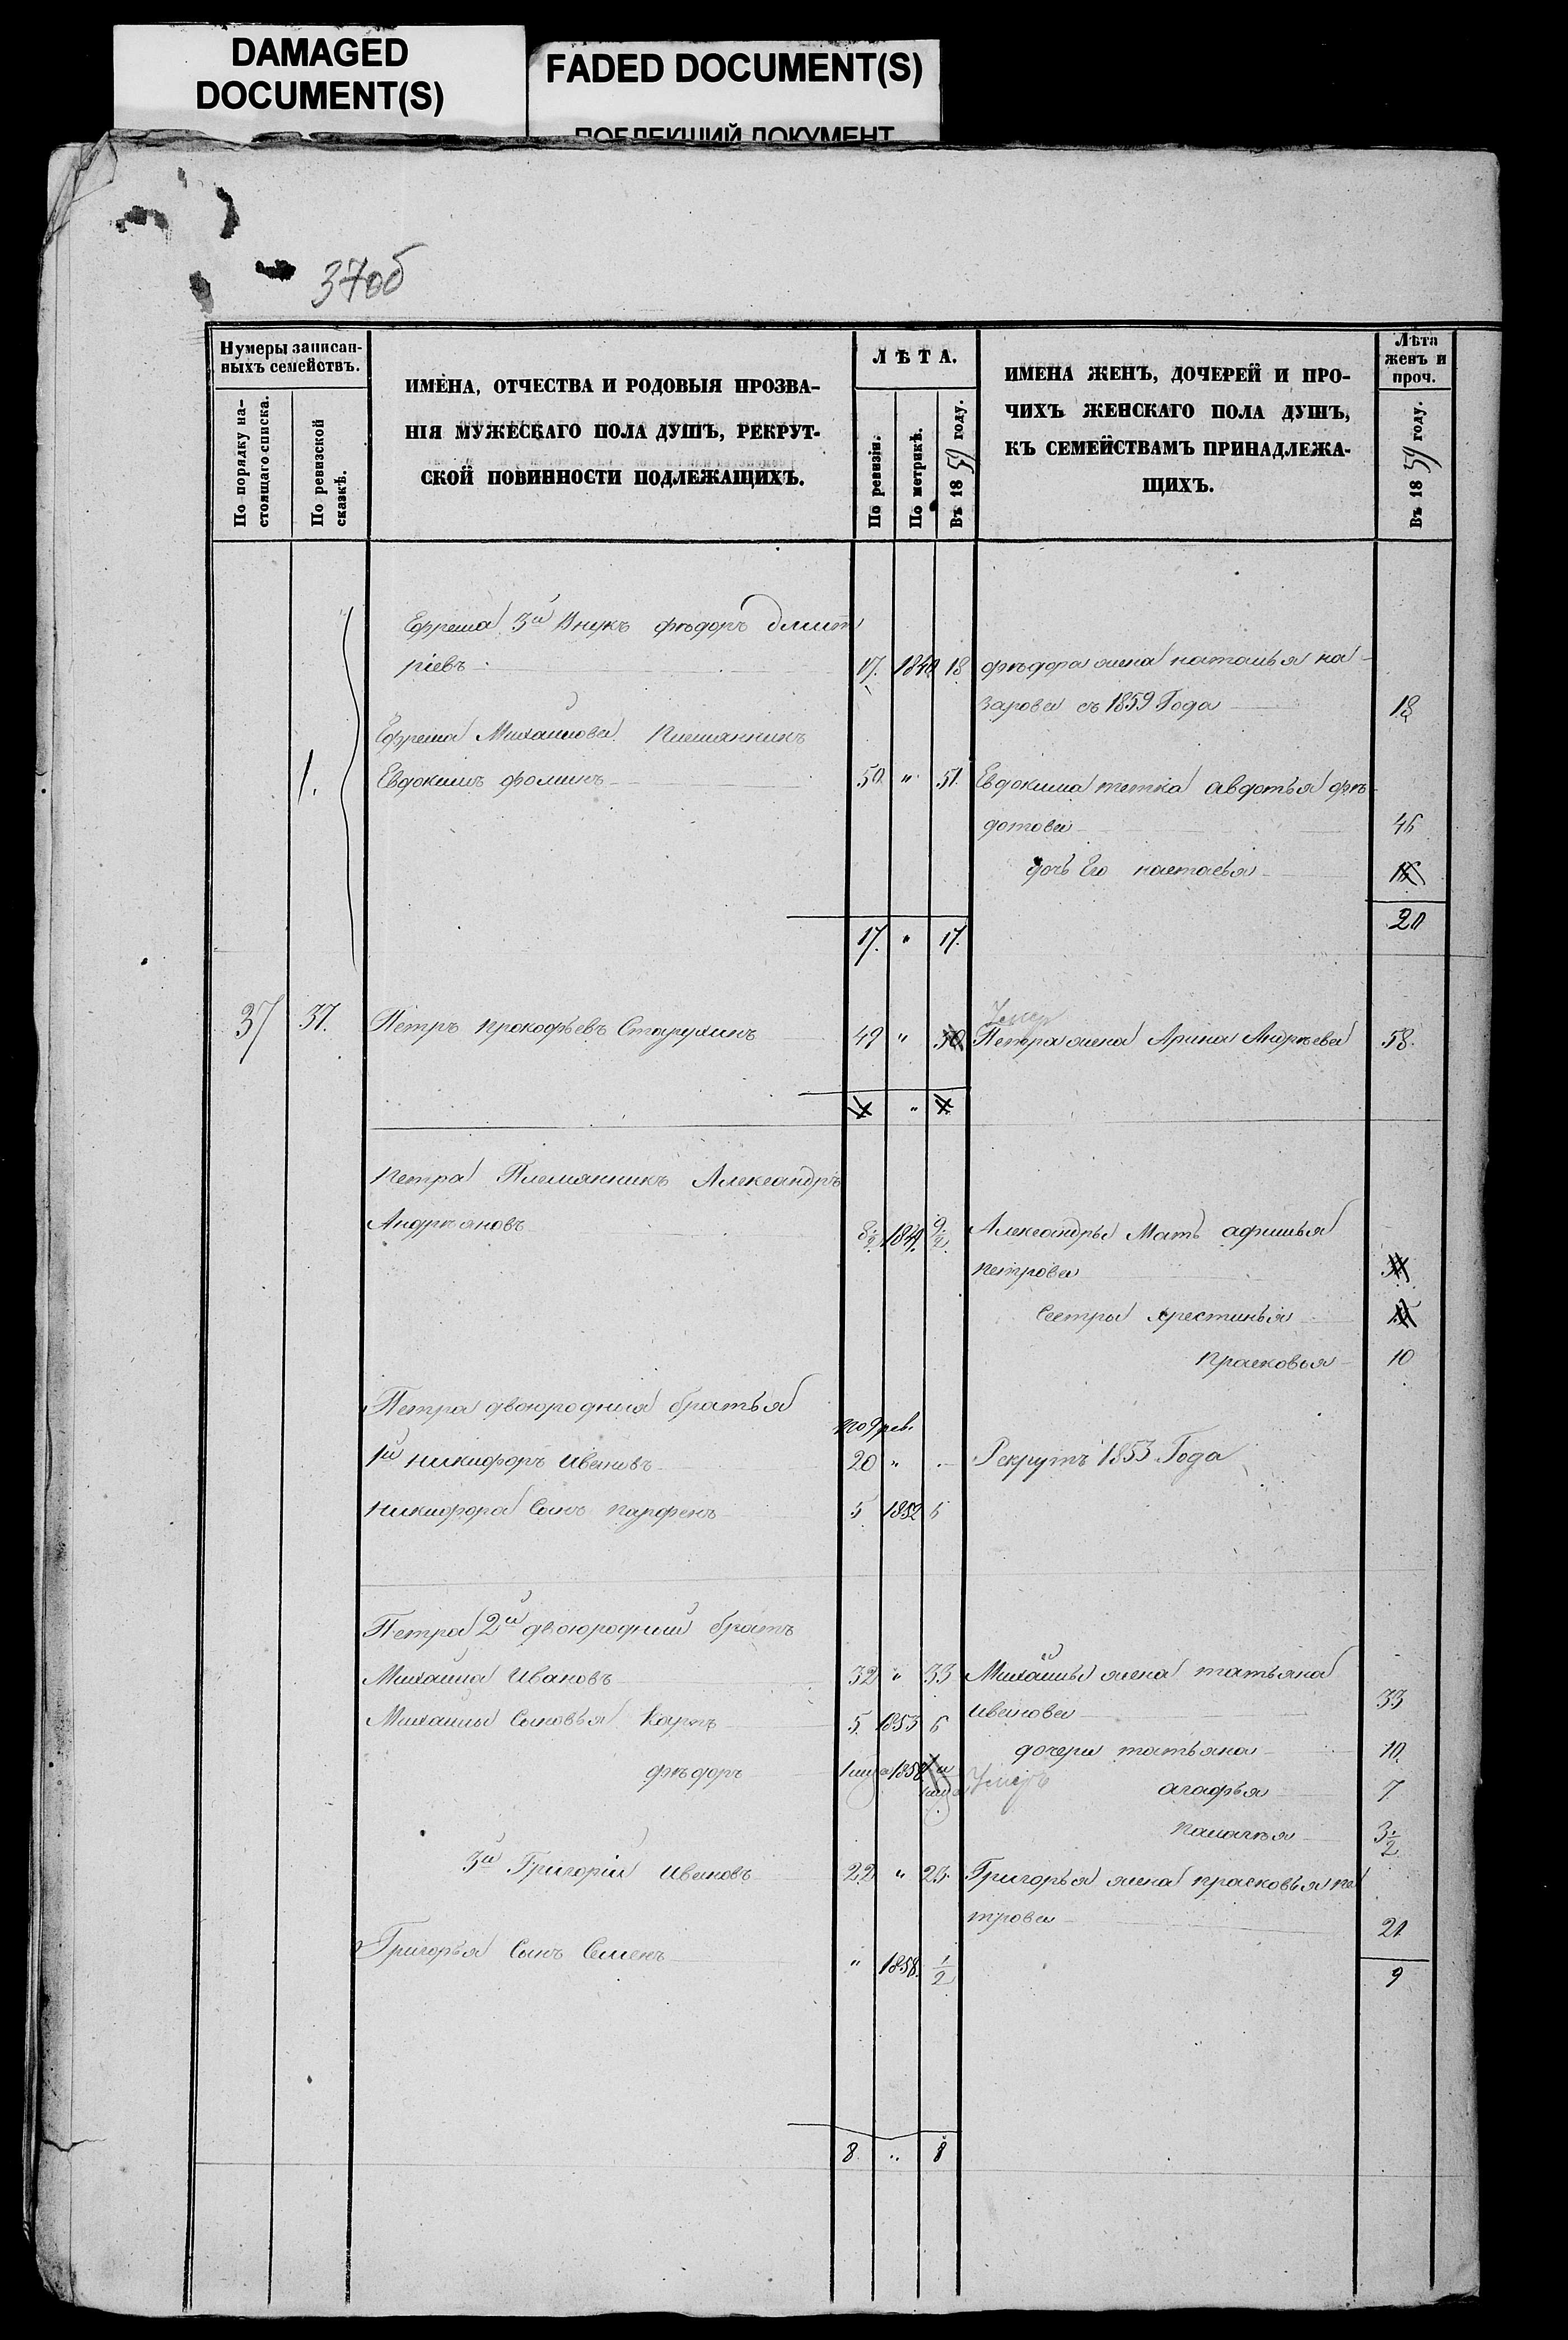 DAMAGED
DOCUMENT(S)
FADED DOCUMENT(S)
ПОБЛЕКШИЙ ДОКУМЕНТ
37об
Нумеры записан-
ныхъ семействъ.
По порядку на-
стоящаго списка.
По ревизской
сказкѣ.
ИМЕНА, ОТЧЕСТВА И РОДОВЫЯ ПРОЗВА-
НІЯ МУЖЕСКАГО ПОЛА ДУШЪ, РЕКРУТ-
СКОЙ ПОВИННОСТИ ПОДЛЕЖАЩИХЪ.
ЛѢТА.
По ревизіи.
По метрикѣ.
Въ 1859 году.
ИМЕНА ЖЕНЪ, ДОЧЕРЕЙ И ПРО-
ЧИХЪ ЖЕНСКАГО ПОЛА ДУШЪ,
КЪ СЕМЕЙСТВАМЪ ПРИНАДЛЕЖА-
ЩИХЪ.
Лѣта
женъ и
проч.
Въ 1859 году.
Ефрема 3й Внукъ фѣдоръ дмит
ріевъ 17. 1840 18 фѣдора жена наталья на-
зарова съ 1859 Года 18
Ефрема Михайлова Племянникъ
1. Евдокимъ фоминъ 50 " 51. Евдокима тетка авдотья фѣ-
дотова 46
дочь Его настасья
20
17. " 17.
37 37. Петръ прокофьевъ Старухинъ 49 " 50 Умер
Петра жена Арина Андрѣева 58.
петра Племянникъ Александръ
Андрѣановъ 8 1/2 1849. 9 1/2 Александры Мать афимья
петрова
Сестры хрестинья
прасковья 10
Петра двоюродныя братья
по 9 рев.
1й никифоръ Ивановъ 20 " Рекрутъ 1853 Года
никифора Сынъ парфенъ 5 1852 6
Петра 2й двоюродный братъ
Михайла Ивановъ 32 " 33 Михайлы жена татьяна
Иванова 33
Михайлы Сыновья Карпъ 5. 1853 6
дочери татьяна 10.
фѣдоръ 1858 Умеръ
агафья 7
палагѣя 3 1/2
3й Григорій Ивановъ 22 " 23. Григорья жена прасковья пе
трова 21
Григорья Сынъ Семенъ " 1858. 1/2
9
8 " 8